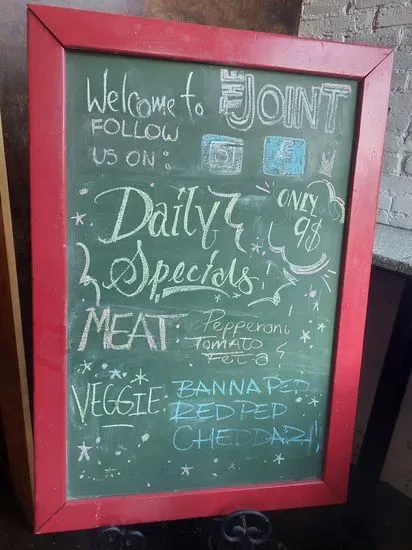 Welcome to THE JOINT
FOLLOW
US ON:
Daily
Specials
ONLY
9$
MEAT: Pepperoni
TOMATO
Feta
VEGGIE: BANNA PEP
RED PEP
CHEDDAR!